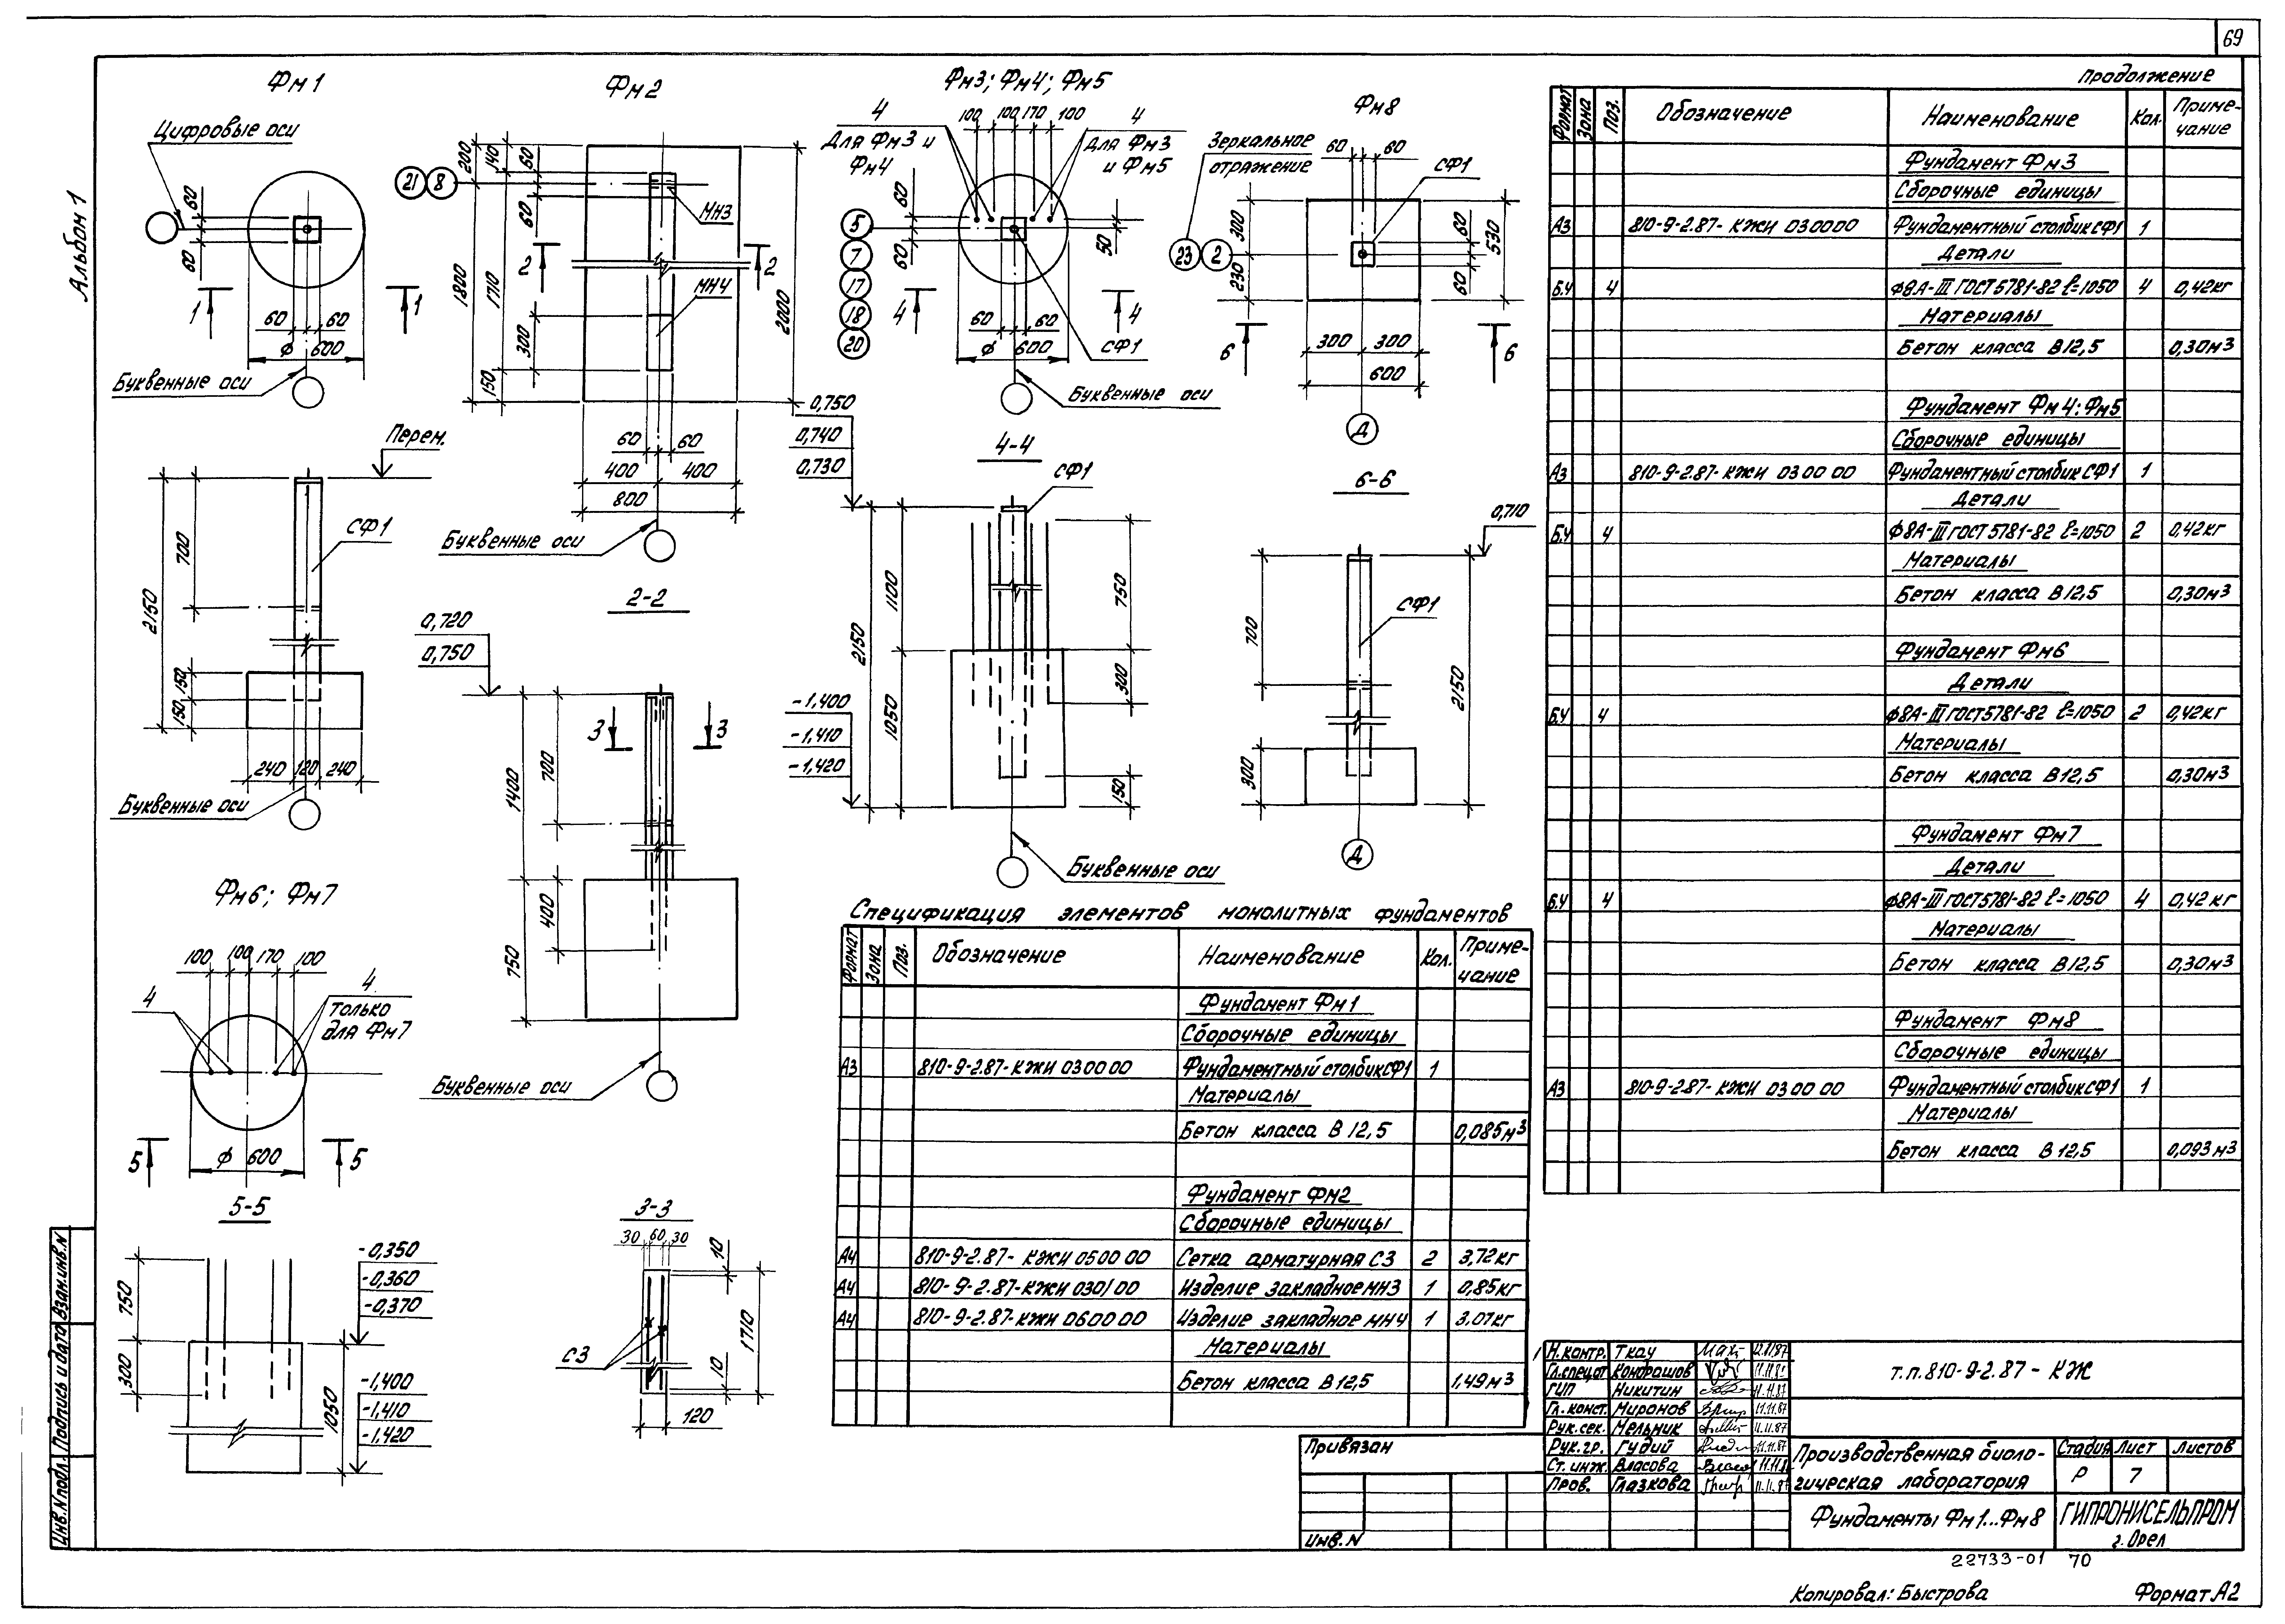 69
Альбом 1
Фм1
Цифровые оси
60
60
1
1
60
60
ф 600
Буквенные оси
Перем.
СФ1
700
2150
150
150
240
120
240
Буквенные оси
Фм2
200
140
60
60
21
8
МН3
2
2
МН4
1800
1710
300
150
2000
60
60
400
400
800
Буквенные оси
2-2
0,720
0,750
3
3
700
1400
400
750
Буквенные оси
Фм3; Фм4; Фм5
4
100
100
170
100
4
Для Фм3 и
Фм4
для Фм3
и Фм5
60
60
50
5
7
17
18
20
4
4
60
60
ф 600
СФ1
Буквенные оси
0,750
0,740
0,730
4-4
СФ1
1100
750
2150
300
1050
150
-1,400
-1,410
-1,420
Буквенные оси
Фм8
Зеркальное
отражение
60
60
СФ1
23
2
300
230
60
60
530
6
6
300
300
600
Д
6-6
0,710
СФ1
700
2150
300
Д
Фм6; Фм7
100
100
170
100
4
4
только
для Фм7
5
5
ф 600
5-5
750
300
-0,350
-0,360
-0,370
1050
-1,400
-1,410
-1,420
3-3
30
60
30
10
1710
С3
10
120
Спецификация элементов монолитных фундаментов
Формат Зона Поз. Обозначение Наименование Кол. Приме-
чание
Фундамент Фм1
Сборочные единицы
А3 810-9-2.87-КЖИ 03 00 00 Фундаментный столбик СФ1 1
Материалы
Бетон класса В 12,5 0,085м3
Фундамент Фм2
Сборочные единицы
А4 810-9-2.87- КЖИ 05 00 00 Сетка арматурная С3 2 3,72кг
А4 810-9-2.87-КЖИ 03 01 00 Изделие закладное МН3 1 0,85кг
А4 810-9-2.87-КЖИ 06 00 00 Изделие закладное МН4 1 3,07кг
Материалы
Бетон класса В 12,5 1,49м3
Продолжение
Формат Зона Поз. Обозначение Наименование Кол. Приме-
чание
Фундамент Фм3
Сборочные единицы
А3 810-9-2.87- КЖИ 03 00 00 Фундаментный столбик СФ1 1
Детали
Б.ч 4 ф8А-III ГОСТ 5781-82 l=1050 4 0,42кг
Материалы
Бетон класса В 12,5 0,30м3
Фундамент Фм4; Фм5
Сборочные единицы
А3 810-9-2.87- КЖИ 03 00 00 Фундаментный столбик СФ1 1
Детали
Б.ч 4 ф8А-III ГОСТ 5781-82 l=1050 2 0,42кг
Материалы
Бетон класса В 12,5 0,30м3
Фундамент Фм6
Детали
Б.ч 4 ф8А-III ГОСТ 5781-82 l=1050 2 0,42кг
Материалы
Бетон класса В 12,5 0,30м3
Фундамент Фм7
Детали
Б.ч 4 ф8А-III ГОСТ 5781-82 l=1050 4 0,42кг
Материалы
Бетон класса В 12,5 0,30м3
Фундамент Фм8
Сборочные единицы
А3 810-9-2.87- КЖИ 03 00 00 Фундаментный столбик СФ1 1
Материалы
Бетон класса В 12,5 0,093м3
Н.контр. Ткач
Гл.спец.от Кондрашов
ГИП Никитин 11.11.87
Гл. конст. Миронов 11.11.87
Рук.сек. Мельник 11.11.87
Рук.гр. Гудий 11.11.87
Ст. инж. Власова
Пров. Глазкова 11.11.87
т.п. 810-9-2.87 - КЖ
Производственная биоло-
гическая лаборатория
Стадия Лист Листов
Р 7
Фундаменты Фм1...Фм8
ГИПРОНИСЕЛЬПРОМ
г. Орел
Привязан
Инв.N
Инв.N подл. Подпись и дата Взам.инв.N
22733-01 70
Копировал: Быстрова Формат А2